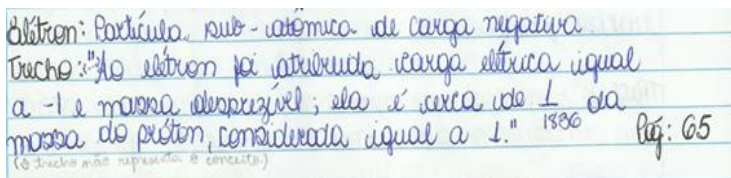 Elétron: Partícula sub-atômica de carga negativa
Trecho: "Ao elétron foi atribuida carga elétrica igual
a -1 e massa desprezível; ela é cerca de 1 da
massa do próton, considerada igual a 1." 1836 Pág: 65
(o trecho não representa o conceito.)